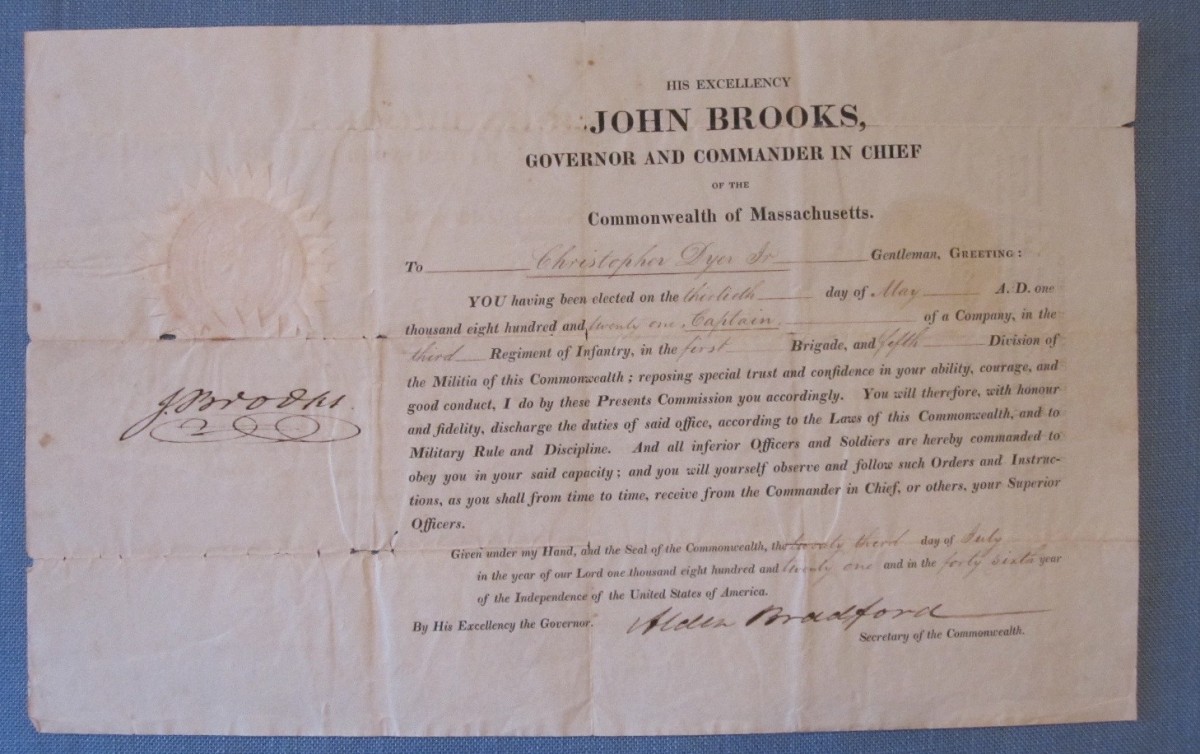 HIS EXCELLENCY
JOHN BROOKS,
GOVERNOR AND COMMANDER IN CHIEF
OF THE
Commonwealth of Massachusetts.
To Christopher Dyer Jr Gentleman, GREETING:
YOU having been elected on the thirtieth day of May A. D. one
thousand eight hundred and twenty one Captain of a Company, in the
third Regiment of Infantry, in the first Brigade, and fifth Division of
the Militia of this Commonwealth; reposing special trust and confidence in your ability, courage, and
good conduct, I do by these Presents Commission you accordingly. You will therefore, with honour
and fidelity, discharge the duties of said office, according to the Laws of this Commonwealth, and to
Military Rule and Discipline. And all inferior Officers and Soldiers are hereby commanded to
obey you in your said capacity; and you will yourself observe and follow such Orders and Instruc-
tions, as you shall from time to time, receive from the Commander in Chief, or others, your Superior
Officers.
J. Brooks.
Given under my Hand, and the Seal of the Commonwealth, the twenty third day of July
in the year of our Lord one thousand eight hundred and twenty one and in the forty sixth year
of the Independence of the United States of America.
By His Excellency the Governor. Alden Bradford
Secretary of the Commonwealth.